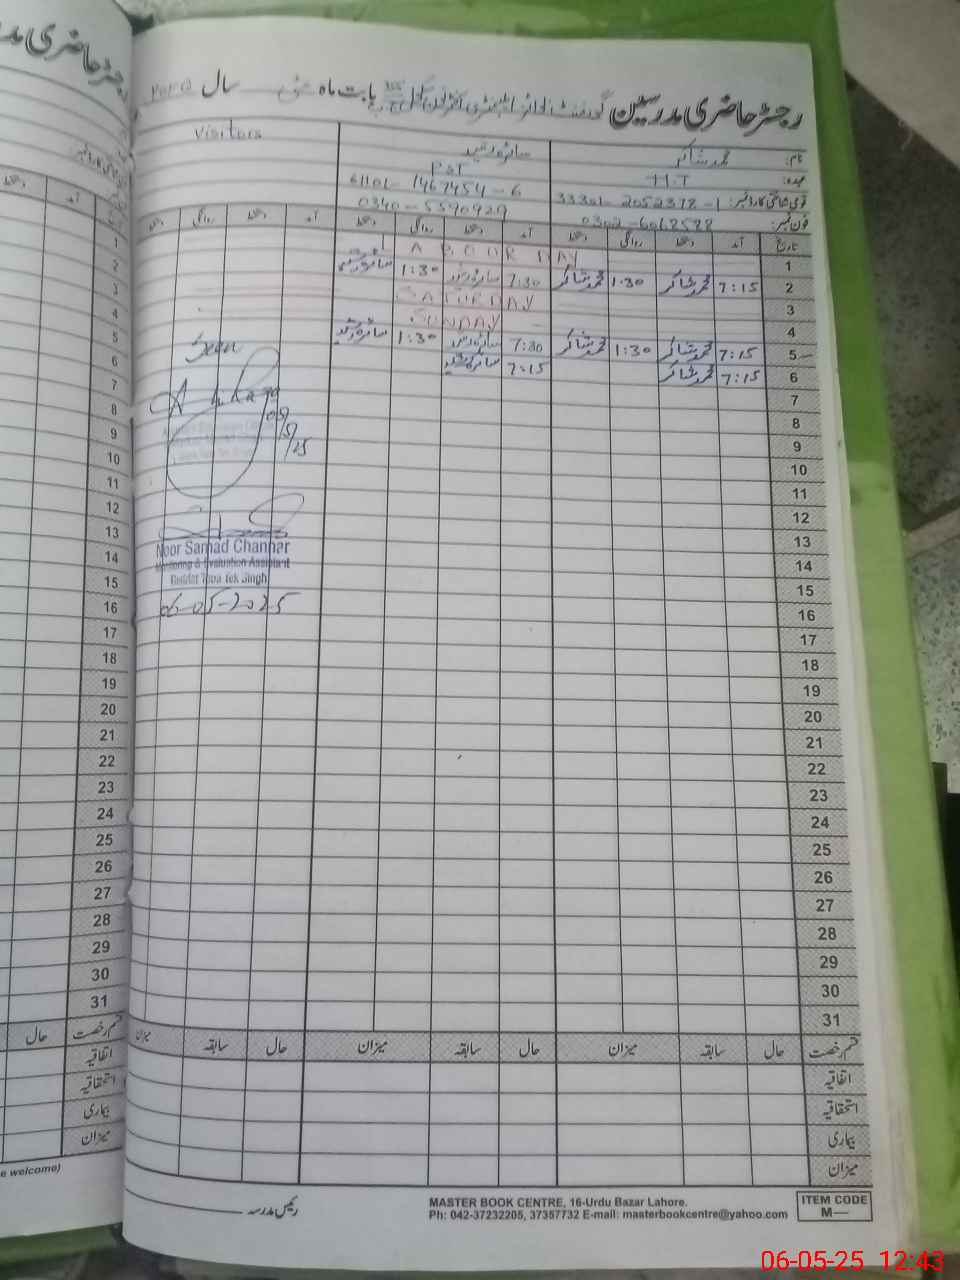 رجسٹر حاضری مدرسین گورنمنٹ بابت ماہ مئی سال
نام: محمد شاکر
سائرہ رشید
Visitors
عہدہ: H.T
PST
قومی شناختی کارڈ نمبر: 33301-2052378-1
61101-1467454-6
فون نمبر: 0302-6068588
0340-5590929
تاریخ آمد دستخط روانگی دستخط آمد دستخط روانگی دستخط آمد دستخط روانگی دستخط
1 LABOUR DAY
2 7:15 محمد شاکر 1:30 محمد شاکر 7:30 سائرہ رشید 1:30 سائرہ رشید
3 SATURDAY
4 SUNDAY
5 7:15 محمد شاکر 1:30 محمد شاکر 7:30 سائرہ رشید 1:30 سائرہ رشید
6 7:15 محمد شاکر 7:15 سائرہ رشید
7
8
9
10
11
12
13
14
15
16
17
18
19
20
21
22
23
24
25
26
27
28
29
30
31
Seen
Noor Samad Channar
Monitoring & Evaluation Assistant
Toba Tek Singh
06-05-2025
قسم رخصت حال سابقہ میزان حال سابقہ میزان حال سابقہ میزان
اتفاقیہ
استحقاقیہ
بیماری
میزان
رئیس مدرسہ
MASTER BOOK CENTRE, 16-Urdu Bazar Lahore.
Ph: 042-37232205, 37357732 E-mail: masterbookcentre@yahoo.com
ITEM CODE
M—
رجسٹر حاضری
1
2
3
4
5
6
7
8
9
10
11
12
13
14
15
16
17
18
19
20
21
22
23
24
25
26
27
28
29
30
31
قسم رخصت حال
اتفاقیہ
استحقاقیہ
بیماری
میزان
e welcome)
06-05-25 12:43